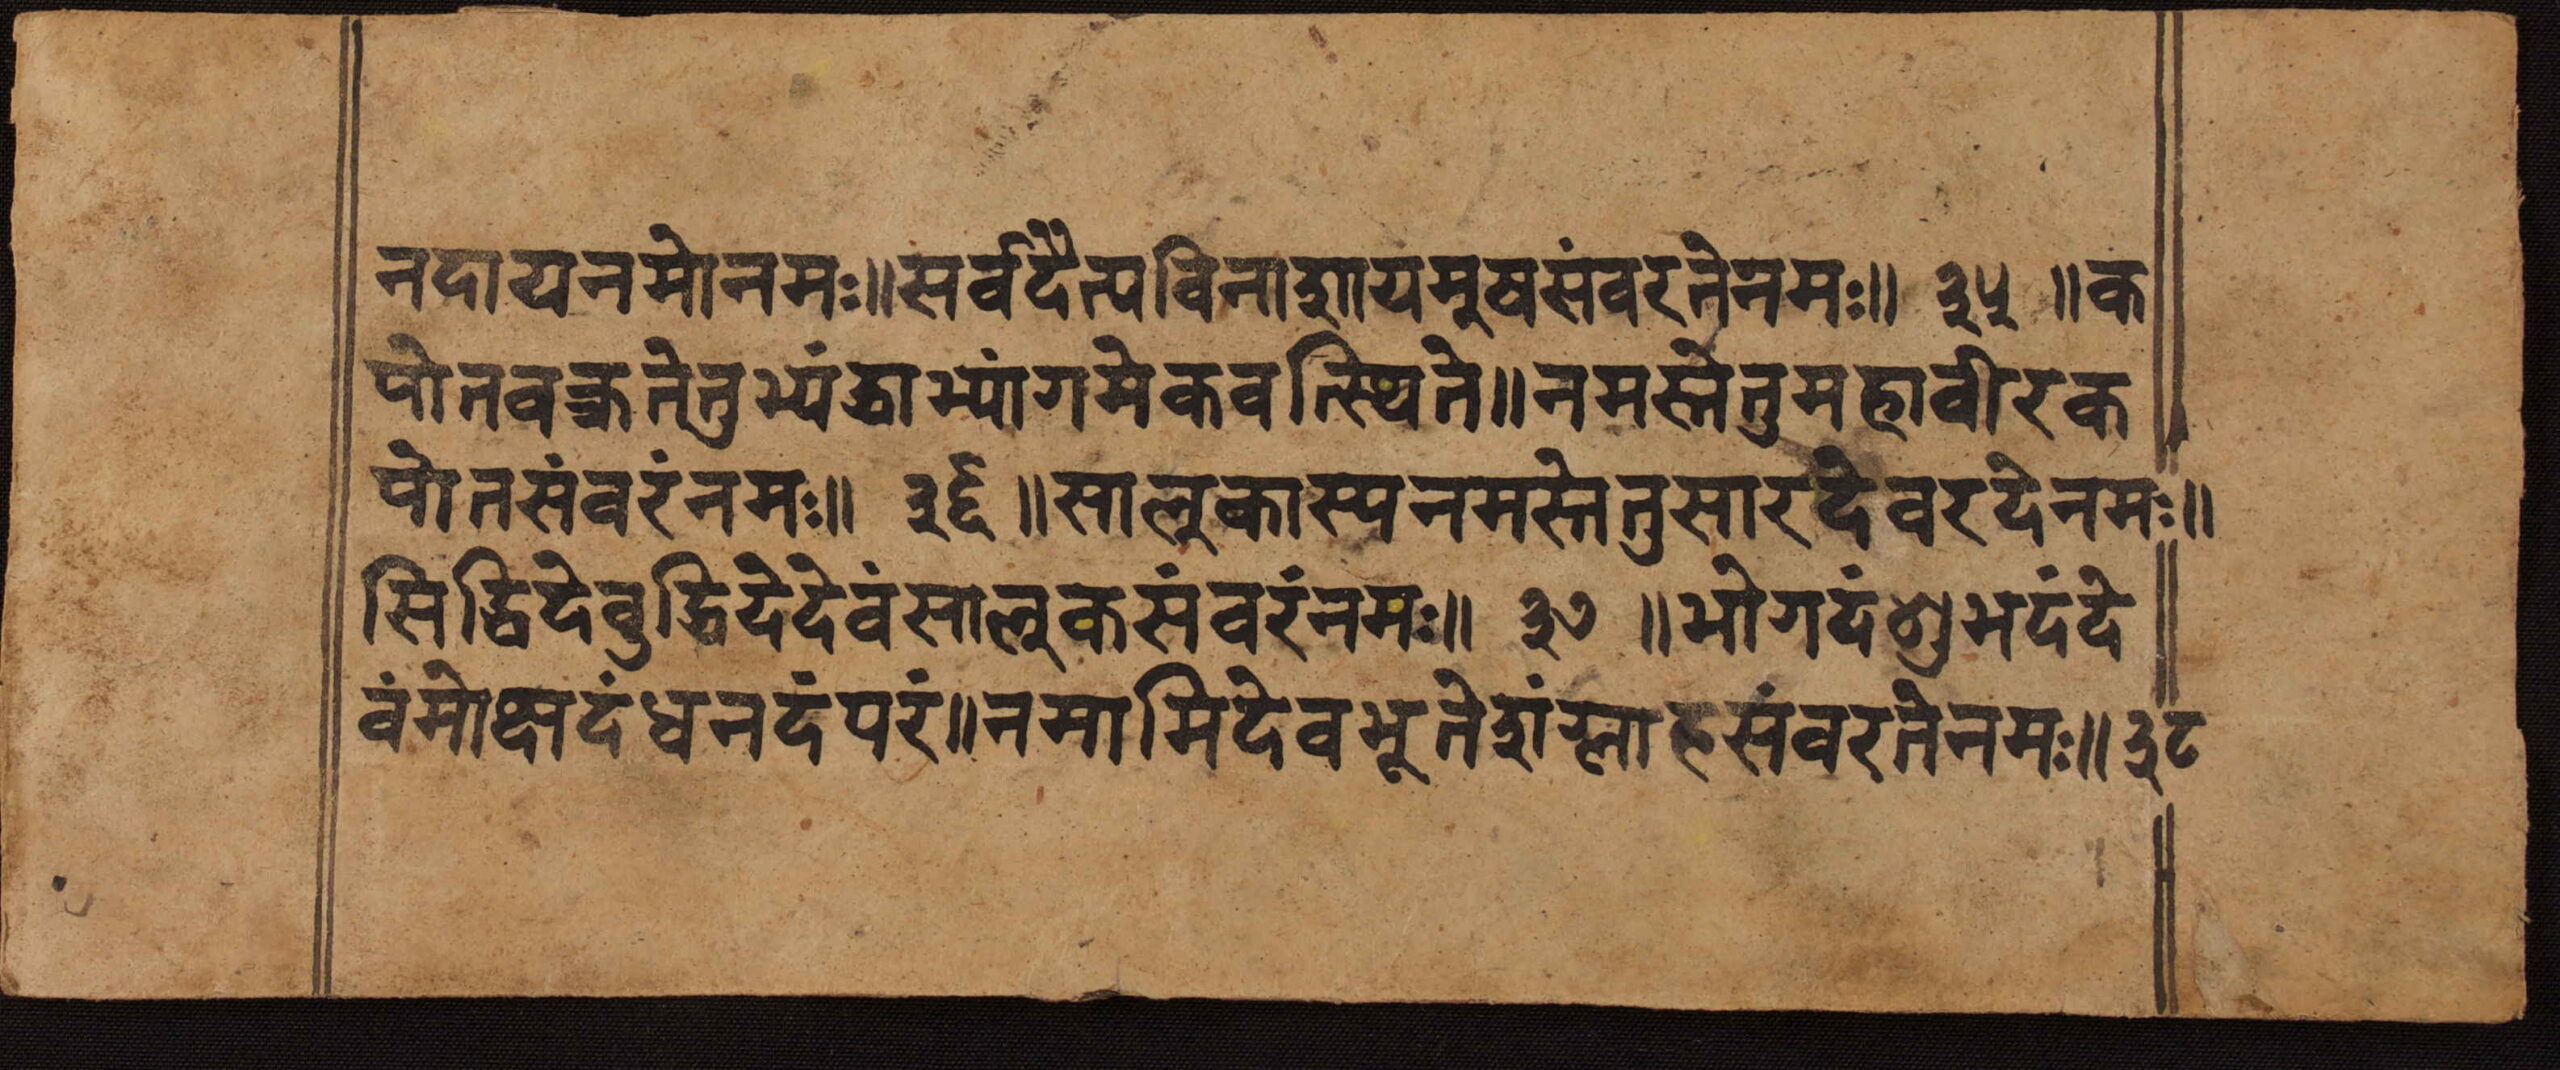 नदाय्यनमोनमः॥सर्वदैत्यविनाशायमूषसंवरतेनमः॥ ३५ ॥क
पोतवक्त्रतेतुभ्यंद्वाभ्यांगमेकवत्स्थिते॥नमस्तेतुमहावीरक
पोतसंवरंनमः॥ ३६ ॥सालूकास्यनमस्तेतुसारदेवरदेनमः॥
सिद्धिदेवुद्धिदेदेवंसालूकसंवरंनमः॥ ३७ ॥भोगदंशुभदंदे
वंमोक्षदंधनदंपरं॥नमामिदेवभूतेशंग्लाहसंवरतेनमः॥३८